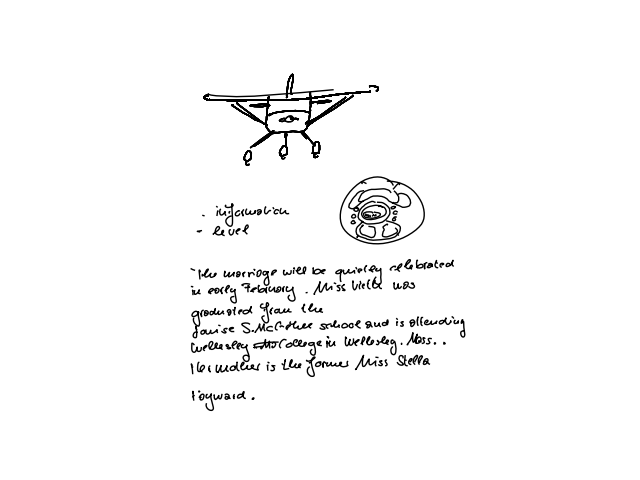 . information
- level
The marriage will be quietly celebrated
in early February. Miss Vielle was
graduated from the
Louise S. McGehee school and is attending
Wellesley College in Wellesley. Mass..
Her mother is the former Miss Stella
Hayward.